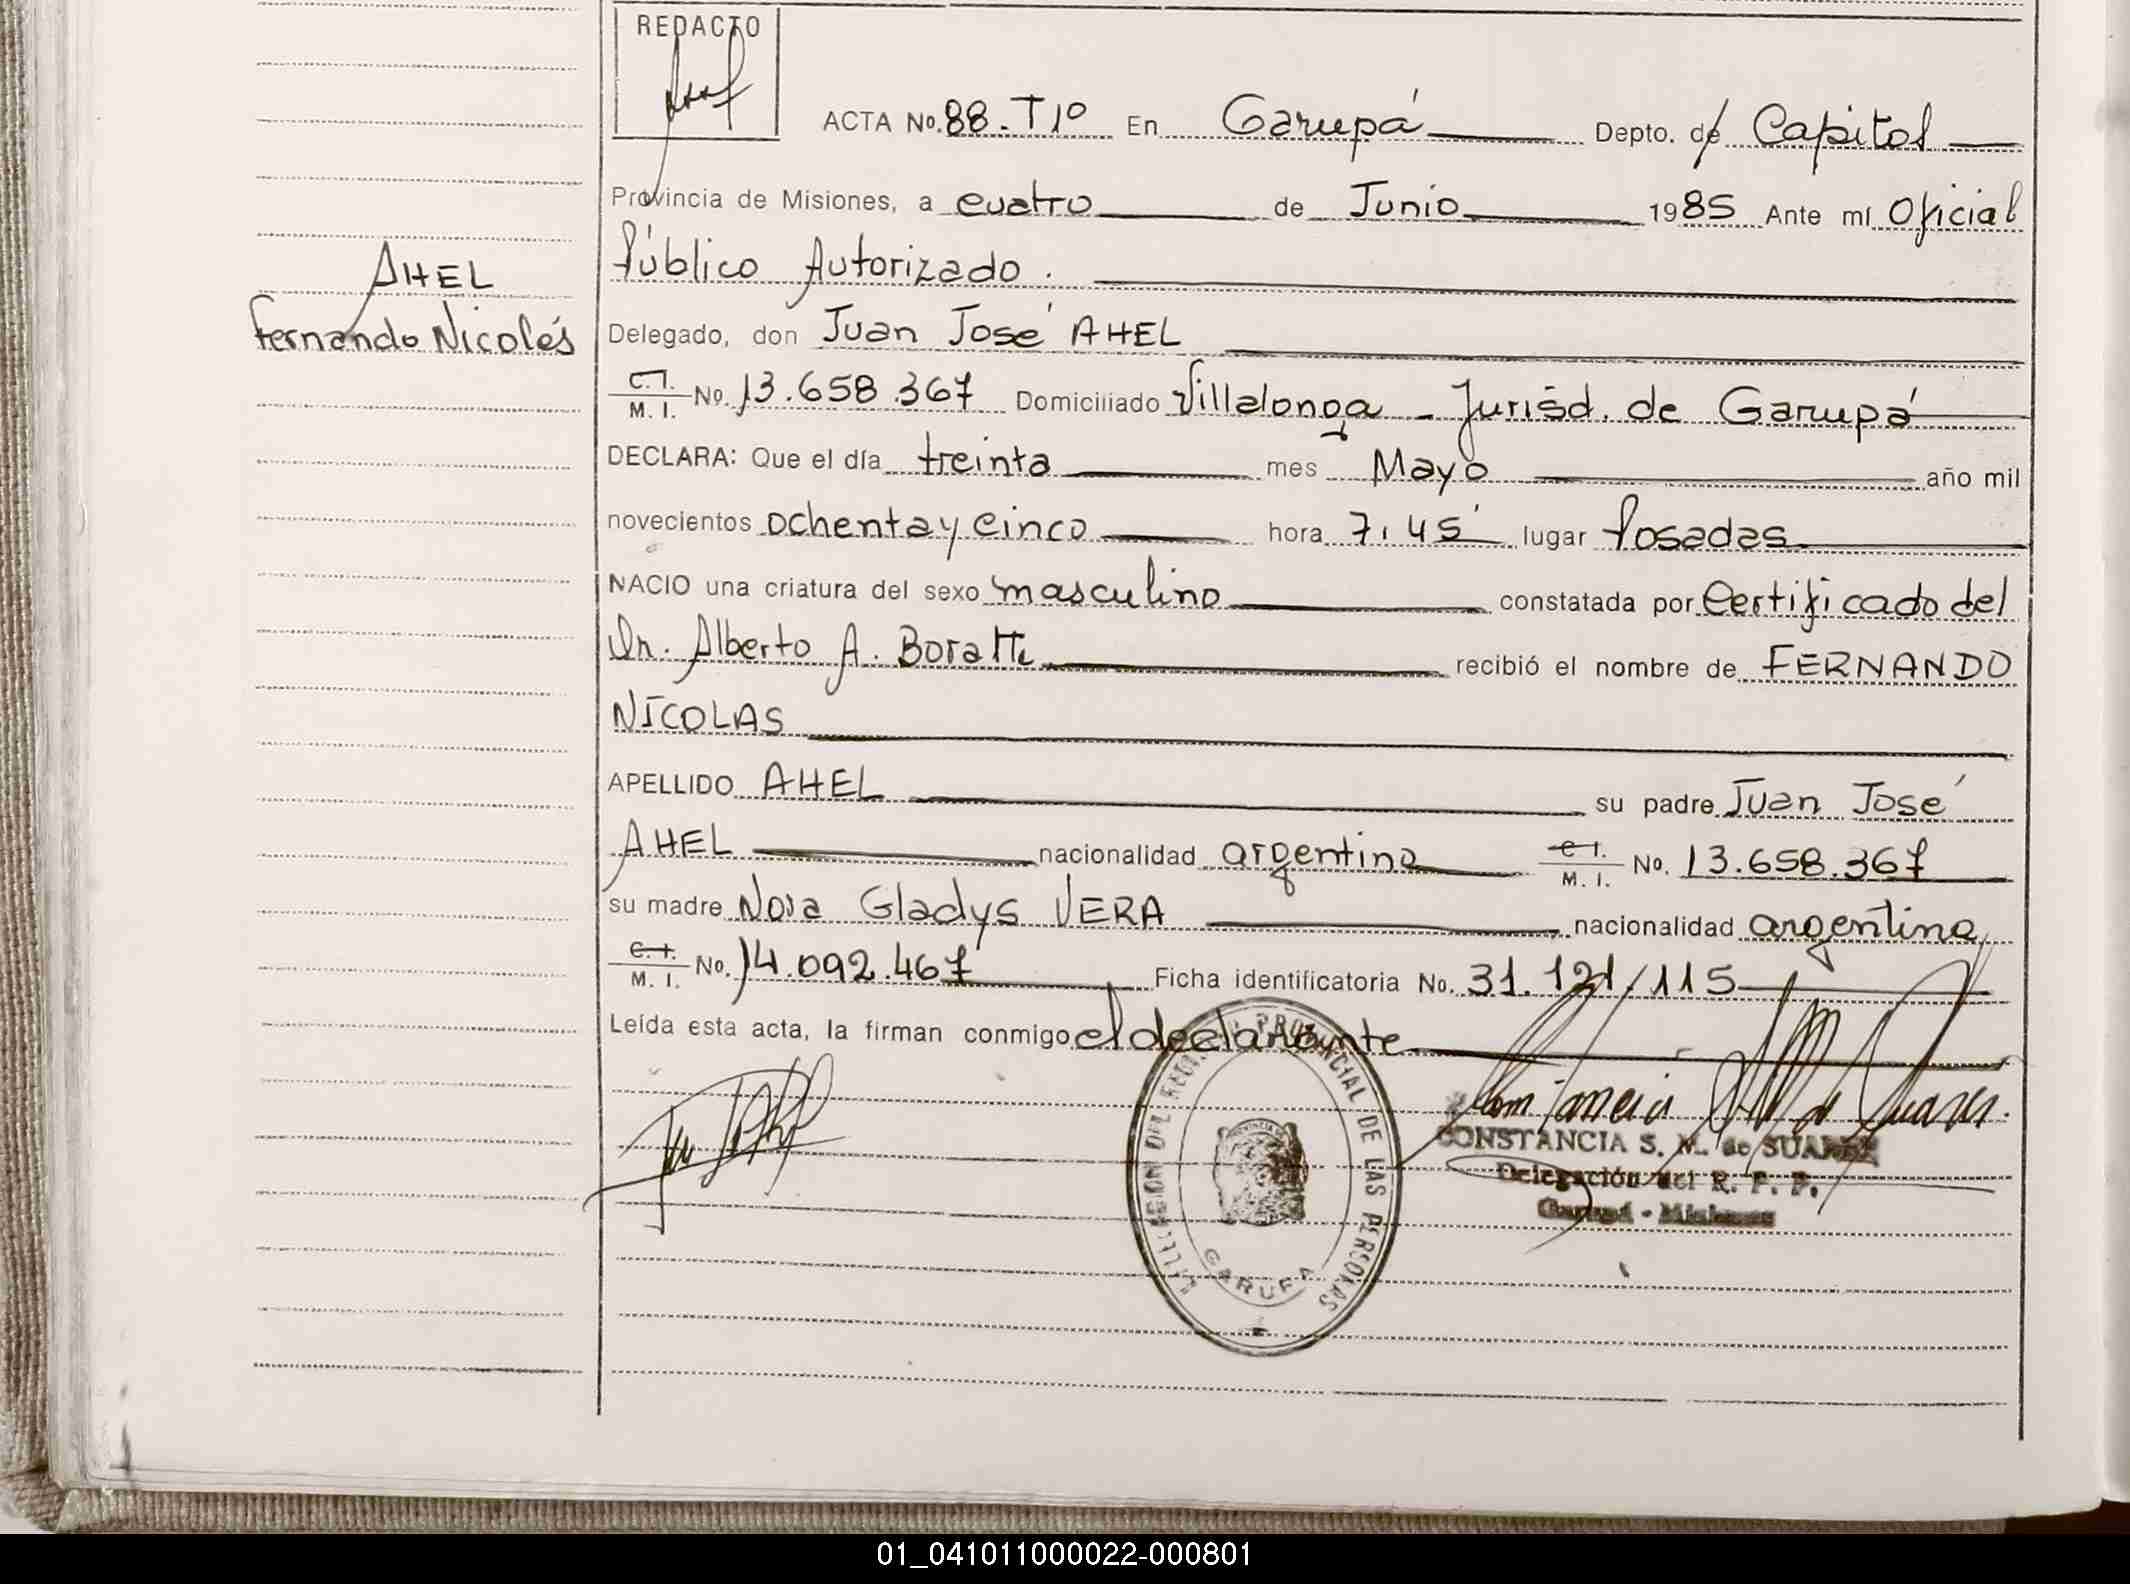 REDACTO
ACTA No. 88. T1º En Garupá Depto. de Capital
Provincia de Misiones, a cuatro de Junio 1985 Ante mí Oficial
Público Autorizado.
AHEL
Fernando Nicolás
Delegado, don Juan José AHEL
C.I. M. I. No. 13.658.367 Domiciliado Villalonga - Jurisd. de Garupá
DECLARA: Que el día treinta mes Mayo año mil
novecientos ochenta y cinco hora 7,45' lugar Posadas
NACIO una criatura del sexo masculino constatada por Certificado del
Dr. Alberto A. Boratti recibió el nombre de FERNANDO
NICOLAS
APELLIDO AHEL su padre Juan José
AHEL nacionalidad argentino C.I. M. I. No. 13.658.367
su madre Nora Gladys VERA nacionalidad argentina
C.I. M. I. No. 14.092.467 Ficha identificatoria No. 31.121/115
Leída esta acta, la firman conmigo el declarante
DELEGACION DEL REGISTRO PROVINCIAL DE LAS PERSONAS
GARUPA
Constancia de Suarez.
CONSTANCIA S. M. de SUAREZ
Delegación del R. P. P.
Garupá - Misiones
01_041011000022-000801